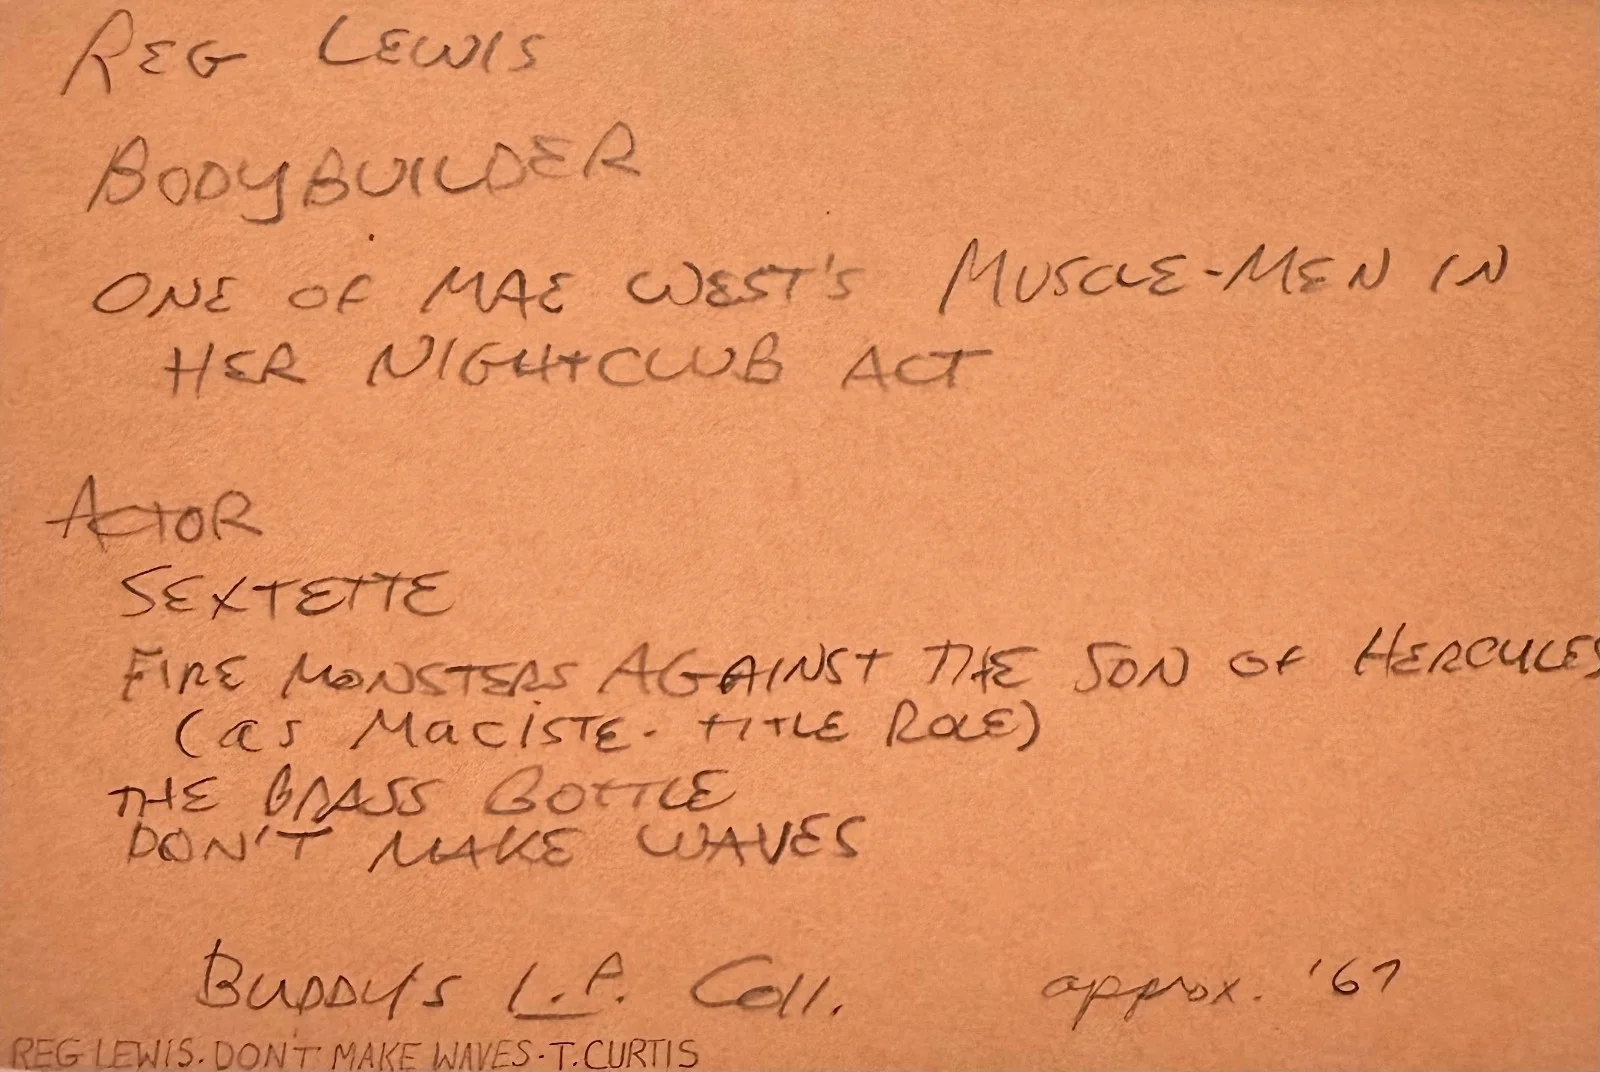 REG LEWIS
BODYBUILDER
ONE OF MAE WEST'S MUSCLE-MEN IN
HER NIGHTCLUB ACT
ACTOR
SEXTETTE
FIRE MONSTERS AGAINST THE SON OF HERCULES
(as MacISTE. TITLE ROLE)
THE BRASS BOTTLE
DON'T MAKE WAVES
BUDDY'S L.P. Coll. approx. '67
REG LEWIS. DON'T MAKE WAVES - T. CURTIS